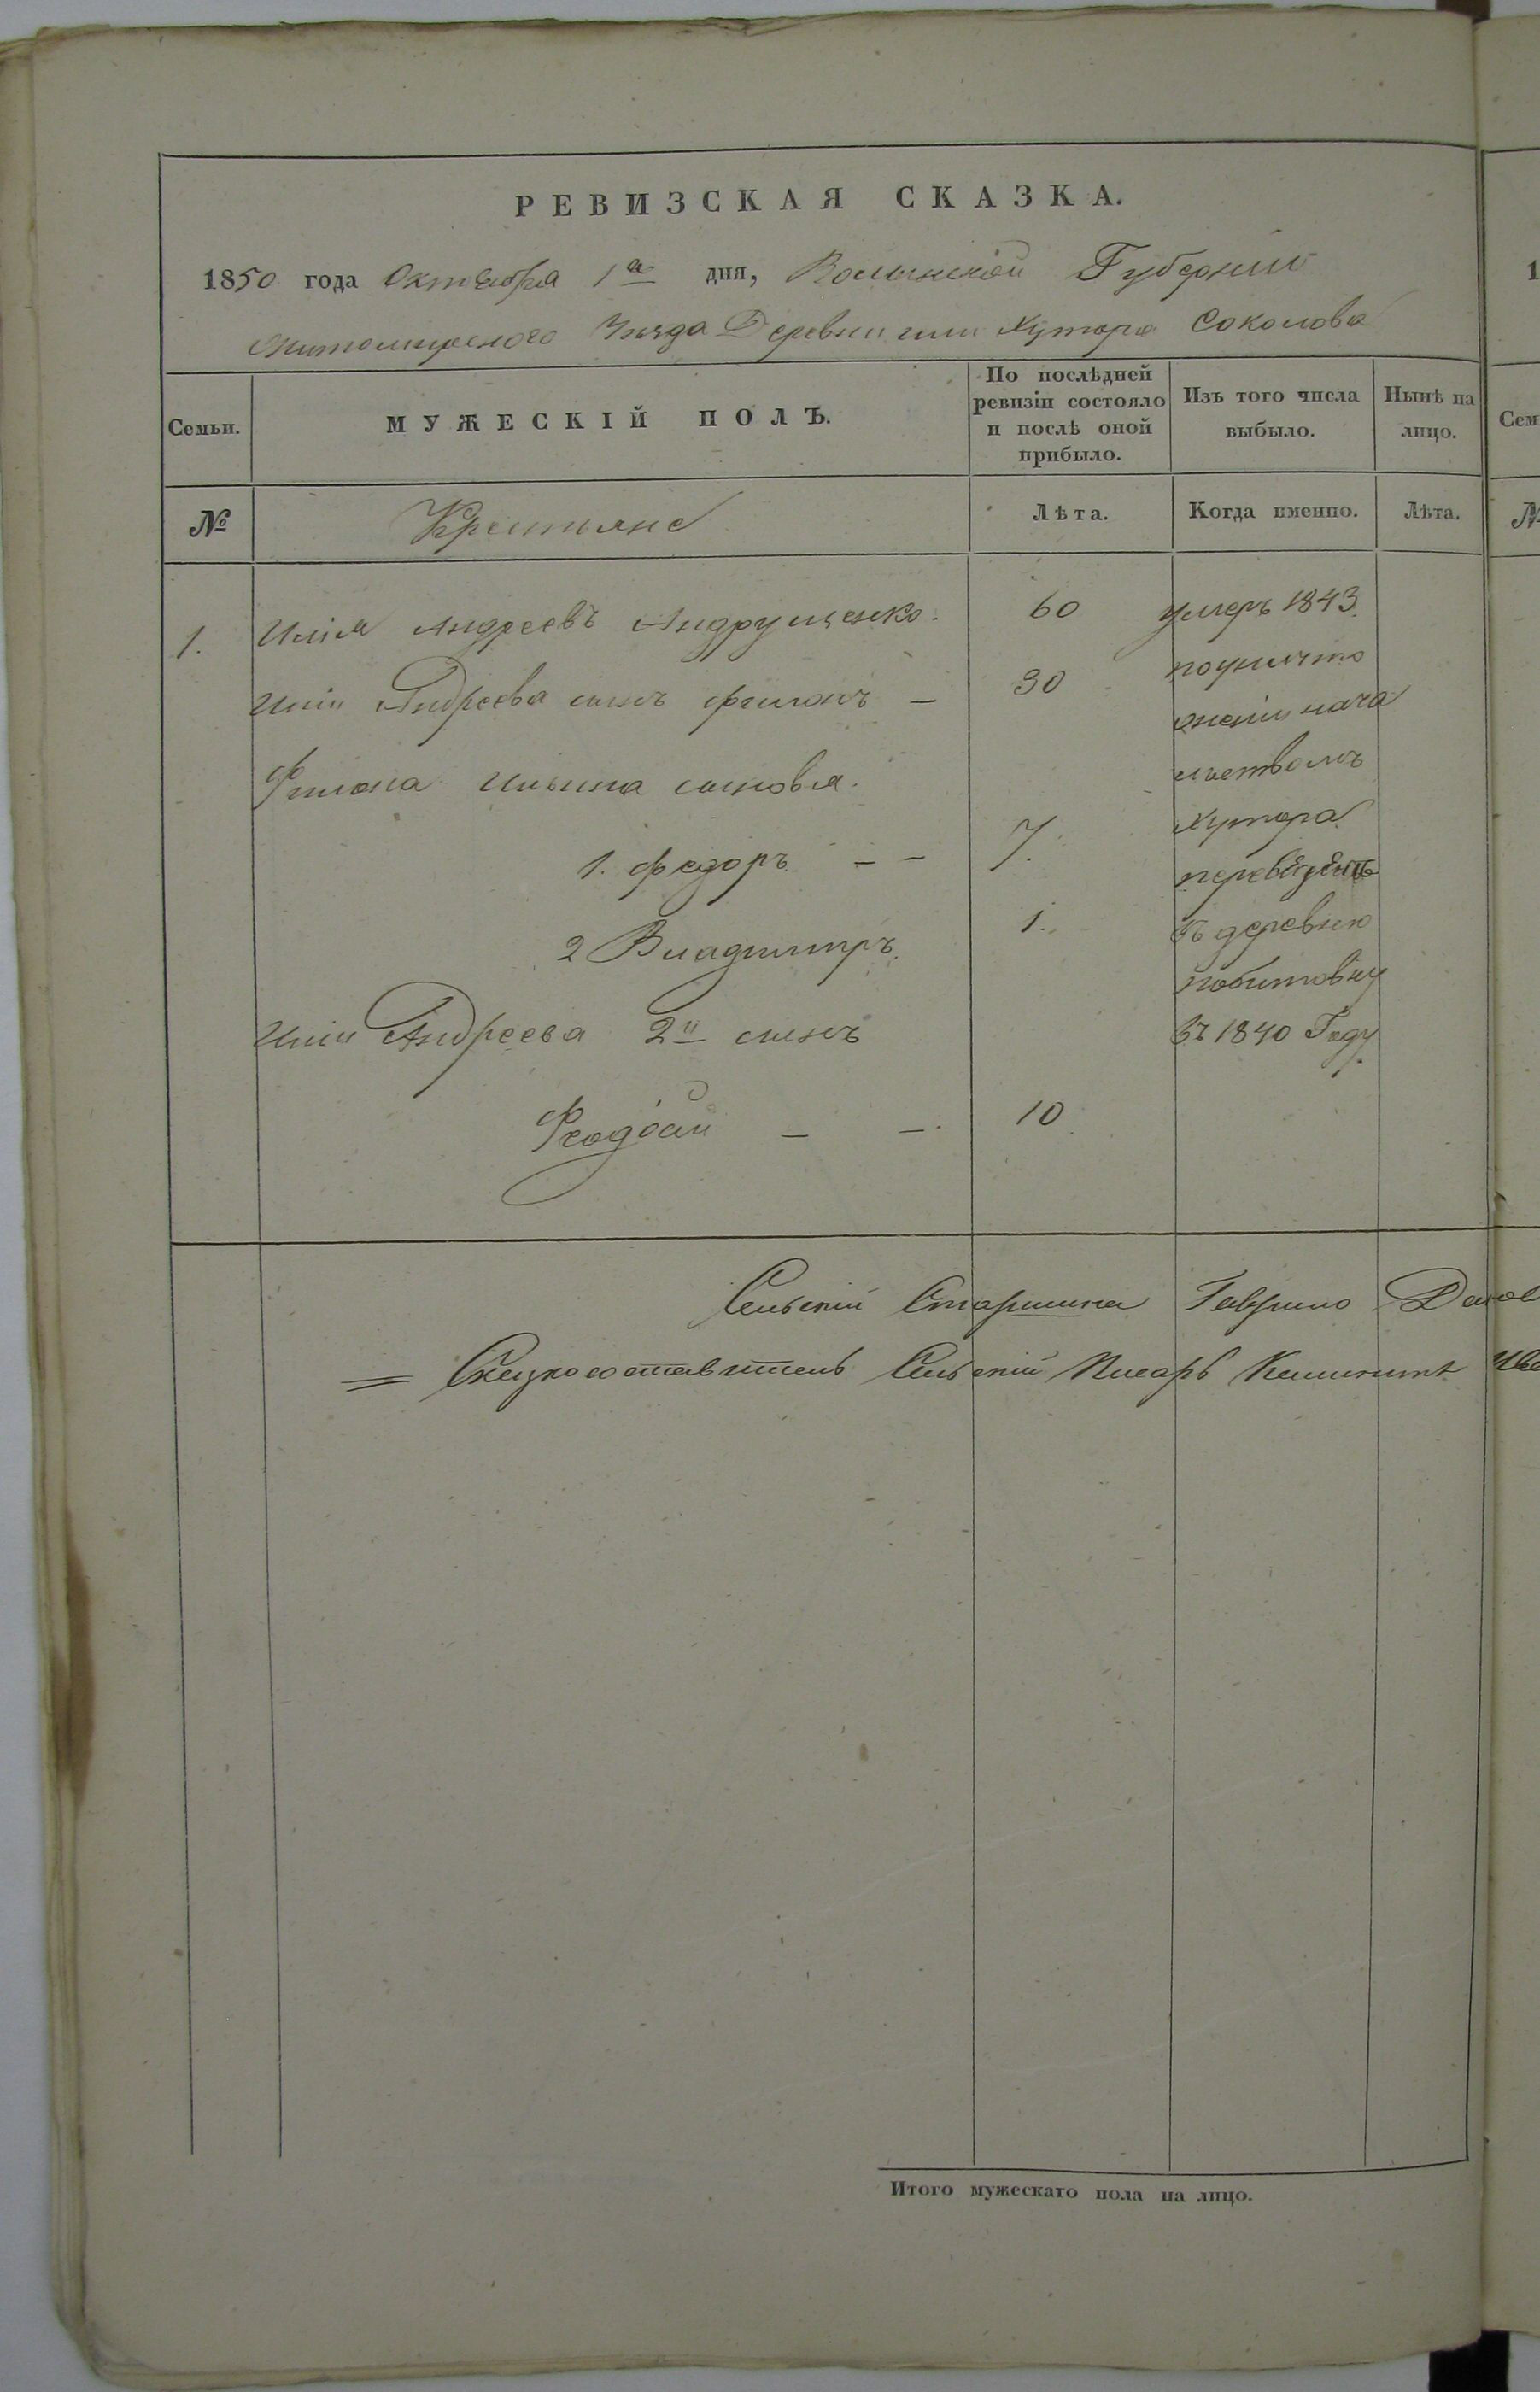 РЕВИЗСКАЯ СКАЗКА.
1850 года Октября 1го дня, Волынской Губерніи
Житомирского Уезда Деревни или Хутора Соколова
Семьи.
МУЖЕСКІЙ ПОЛЪ.
По послѣдней ревизіи состояло и послѣ оной прибыло.
Изъ того числа выбыло.
Нынѣ на лицо.
№
Крестьяне
Лѣта.
Когда именно.
Лѣта.
1. Илія Андреевъ Андрущенко. 60 умеръ 1843.
Иліи Андреева сынъ Филонъ — 30 поуничто
жении нача
Филона Ильина сыновья. льствомъ
Хутора
1. Федоръ — — 7. переведены
2 Владимиръ. 1. въ деревню
Иліи Андреева 2й сынъ въ 1840 Году
Феодосій — — 10
Сельскій Старшина Гаврило
Сказкосоставитель Сельскій Писарь
Итого мужескаго пола на лицо.
1
Сем
№